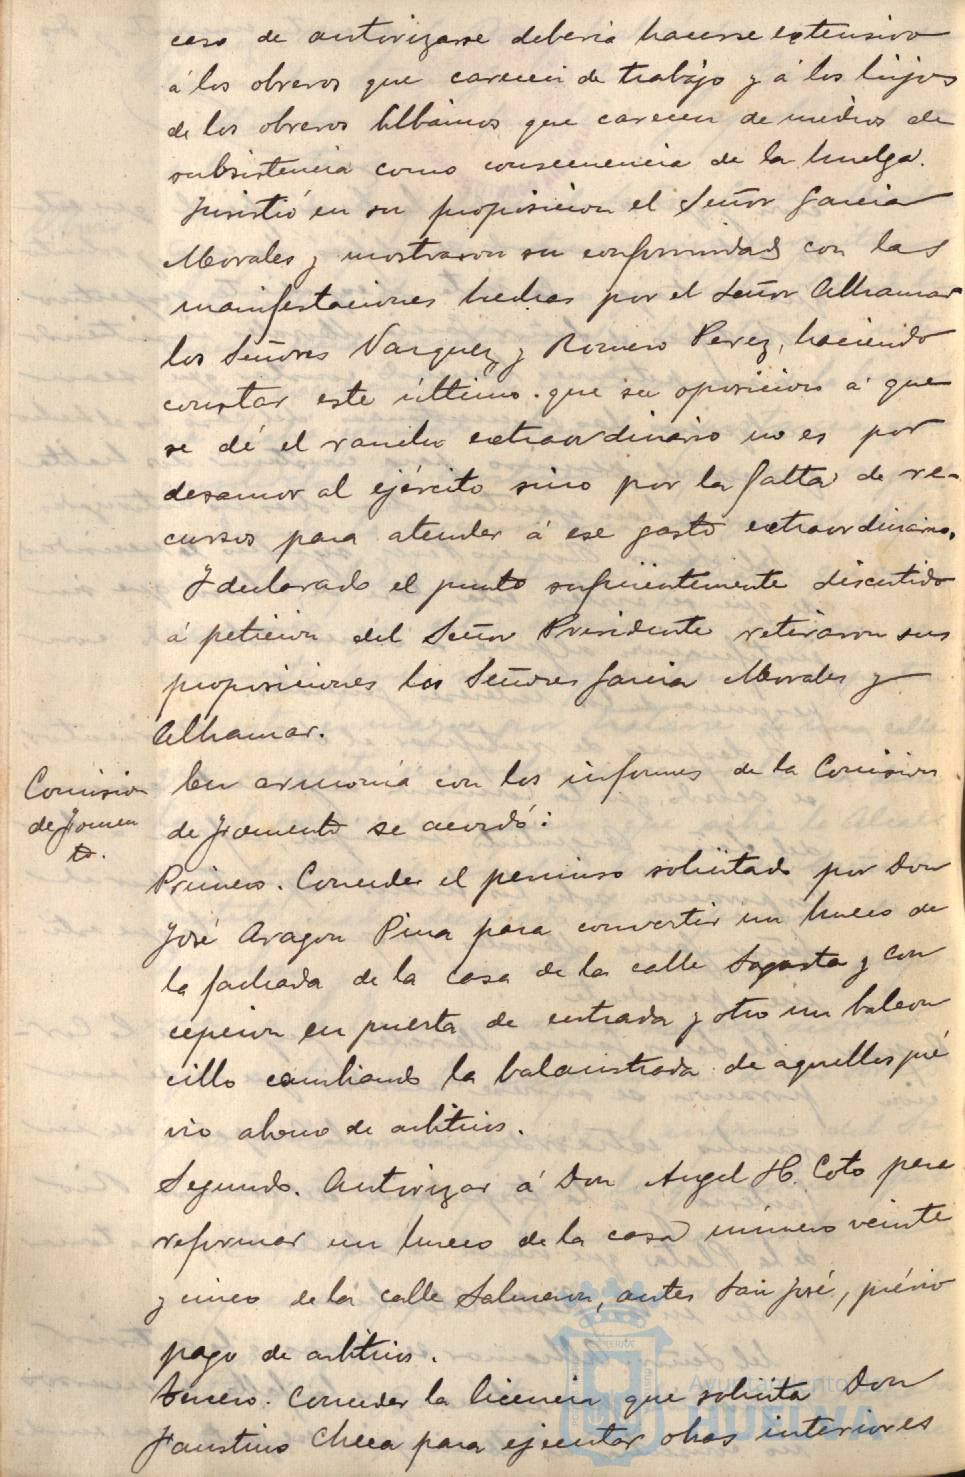 caso de autorizarse deberia hacerse extensivo
á los obreros que carecen de trabajo y á los hijos
de los obreros albañiles que carecen de medios de
subsistencia como consecuencia de la huelga.
Insistió en su proposicion el Señor Garcia
Morales y mostraron su conformidad con las
manifestaciones hechas por el Señor Alhamar
los Señores Vazquez y Romero Perez, haciendo
constar este último que su oposicion á que
se dé el rancho extraordinario no es por
desamor al ejército sino por la falta de re-
cursos para atender á ese gasto extraordinario.
Y declarado el punto suficientemente discutido
á peticion del Señor Presidente retiraron sus
proposiciones los Señores Garcia Morales y
Alhamar.
Comision
de Fomen
to.
En armonía con los informes de la Comision
de Fomento se acordó:
Primero. Conceder el permiso solicitado por Don
José Aragon Pina para convertir un hueco de
la fachada de la casa de la calle Sagasta y Con
cepcion en puerta de entrada y otro en balcon
cillo cambiando la balaustrada de aquellos pré
vio abono de arbitrios.
Segundo. Autorizar á Don Angel H. Coto para
reformar un hueco de la casa número veinte
y cinco de la calle Salmeron, antes San José, prévio
pago de arbitrios.
Tercero. Conceder la licencia que solicita Don
Faustino Checa para ejecutar obras interiores
Ayuntamiento de
HUELVA